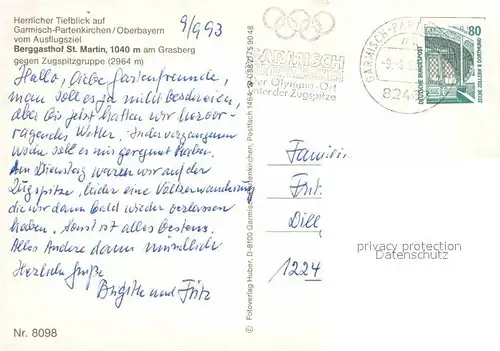 Herrlicher Tiefblick auf
Garmisch-Partenkirchen / Oberbayern
vom Ausflugsziel
Berggasthof St. Martin, 1040 m am Grasberg
gegen Zugspitzgruppe (2964 m)
9/9 93
Hallo, liebe Gartenfreunde,
man soll es ja nicht beschreien,
aber bis jetzt hatten wir hervor-
ragendes Wetter. In der vergangenen
Woche soll es nur geregnet haben.
Am Dienstag waren wir auf der
Zugspitze, leider eine Völkerwanderung
die wir dann bald wieder verlassen
haben. Sonst ist alles bestens.
Alles Andere dann mündlich
Herzliche Grüße
Brigitte und Fritz
Nr. 8098
© Fotoverlag Huber, D-8100 Garmisch-Partenkirchen, Postfach
GARMISCH
Der Olympia-Ort
unter der Zugspitze
GARMISCH-PA
824
80
DEUTSCHE BUNDESPOST
ZECHE ZOLLERN II DORTMUND
Frit
Dill
1224
privacy protection